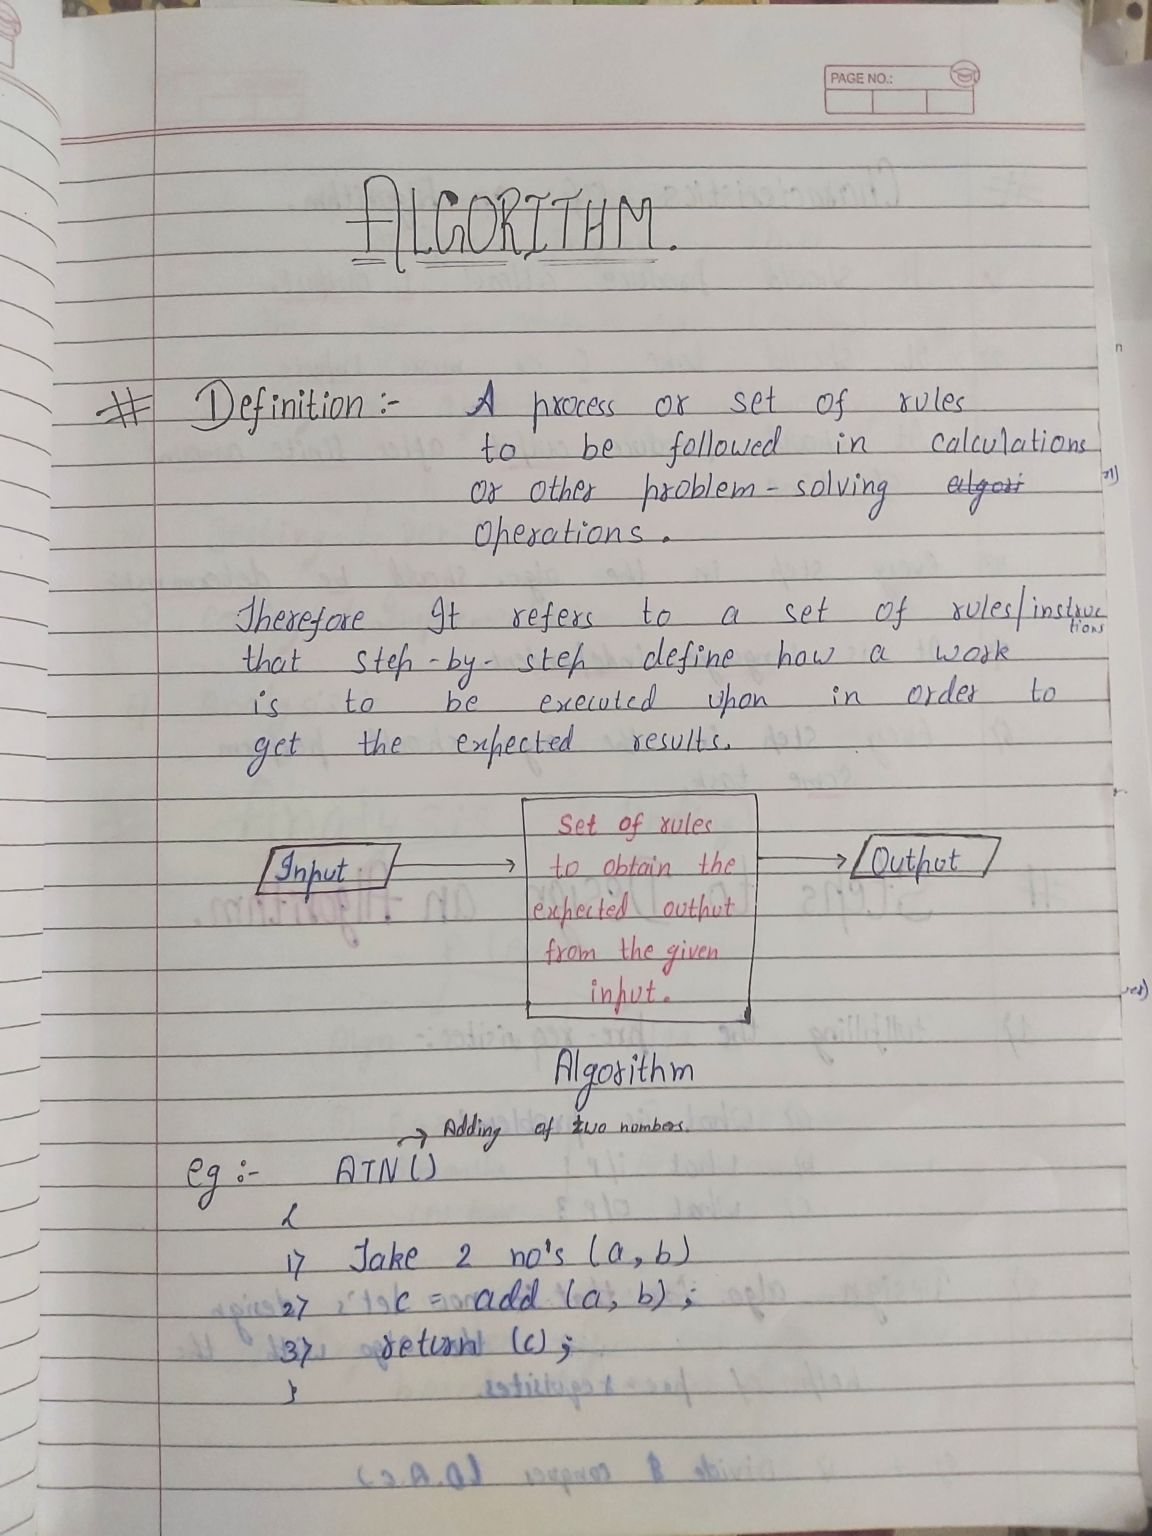 PAGE NO.:
ALGORITHM.
# Definition :- A process or set of rules
to be followed in calculations
or other problem-solving algori
Operations.
Therefore It refers to a set of rules/instructions
that step-by-step define how a work
is to be executed upon in order to
get the expected results.
Input
Set of rules
to obtain the
expected output
from the given
input.
Output
Algorithm
→ Adding of two numbers.
eg :- ATN()
{
1) Take 2 no's (a, b)
2) c = add (a, b);
3) return (c);
}